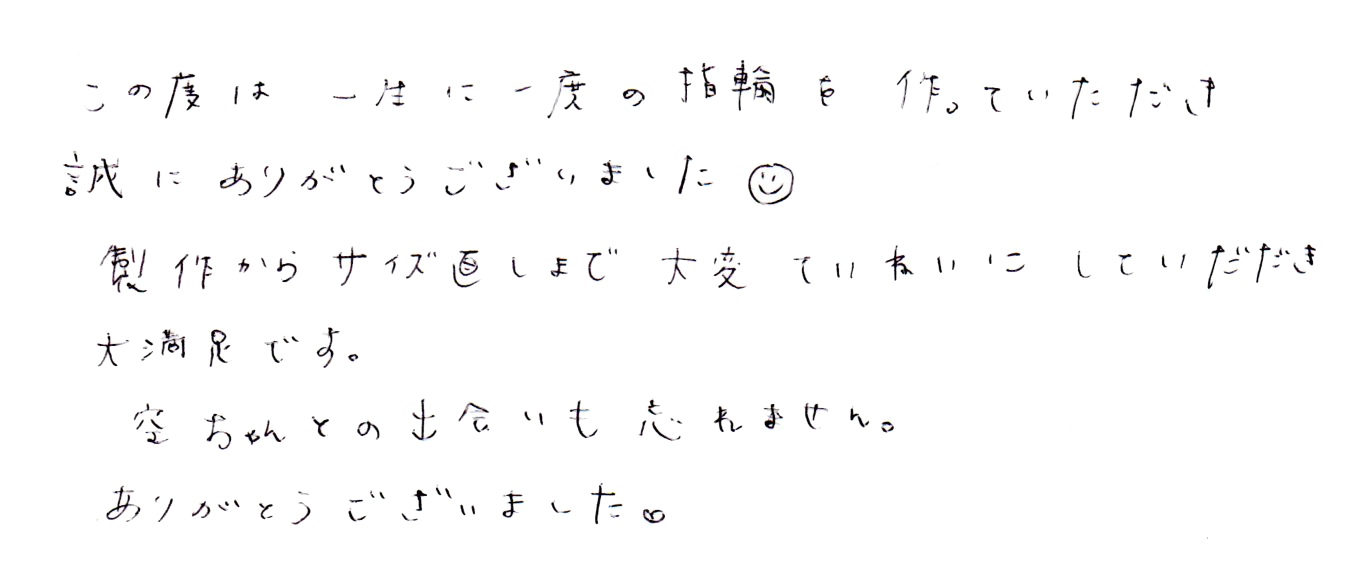 この度は 一生に一度の指輪を 作っていただき
誠に ありがとうございました☺
製作からサイズ直しまで 大変 ていねいに していだだき
大満足です。
空ちゃんとの出会いも 忘れません。
ありがとうございました。